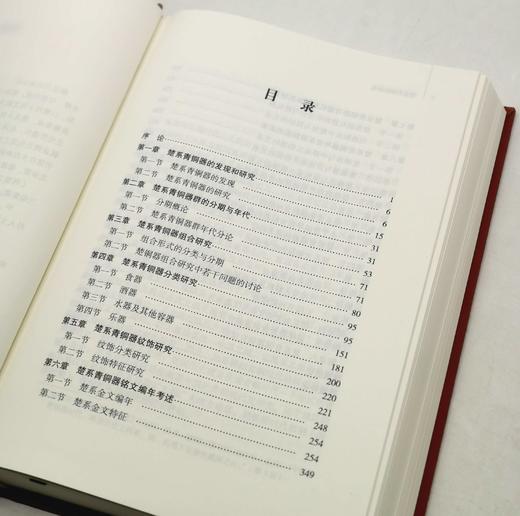 目 录
序 论 1
第一章 楚系青铜器的发现和研究 6
第一节 楚系青铜器的发现 6
第二节 楚系青铜器的研究 15
第二章 楚系青铜器群的分期与年代 31
第一节 分期概论 31
第二节 楚系青铜器群年代分论 53
第三章 楚系青铜器组合研究 71
第一节 组合形式的分类与分期 71
第二节 楚铜器组合研究中若干问题的讨论 80
第四章 楚系青铜器分类研究 95
第一节 食器 95
第二节 酒器 151
第三节 水器及其他容器 181
第四节 乐器 200
第五章 楚系青铜器纹饰研究 220
第一节 纹饰分类研究 221
第二节 纹饰特征研究 248
第六章 楚系青铜器铭文编年考述 254
第一节 楚系金文编年 254
第二节 楚系金文特征 349